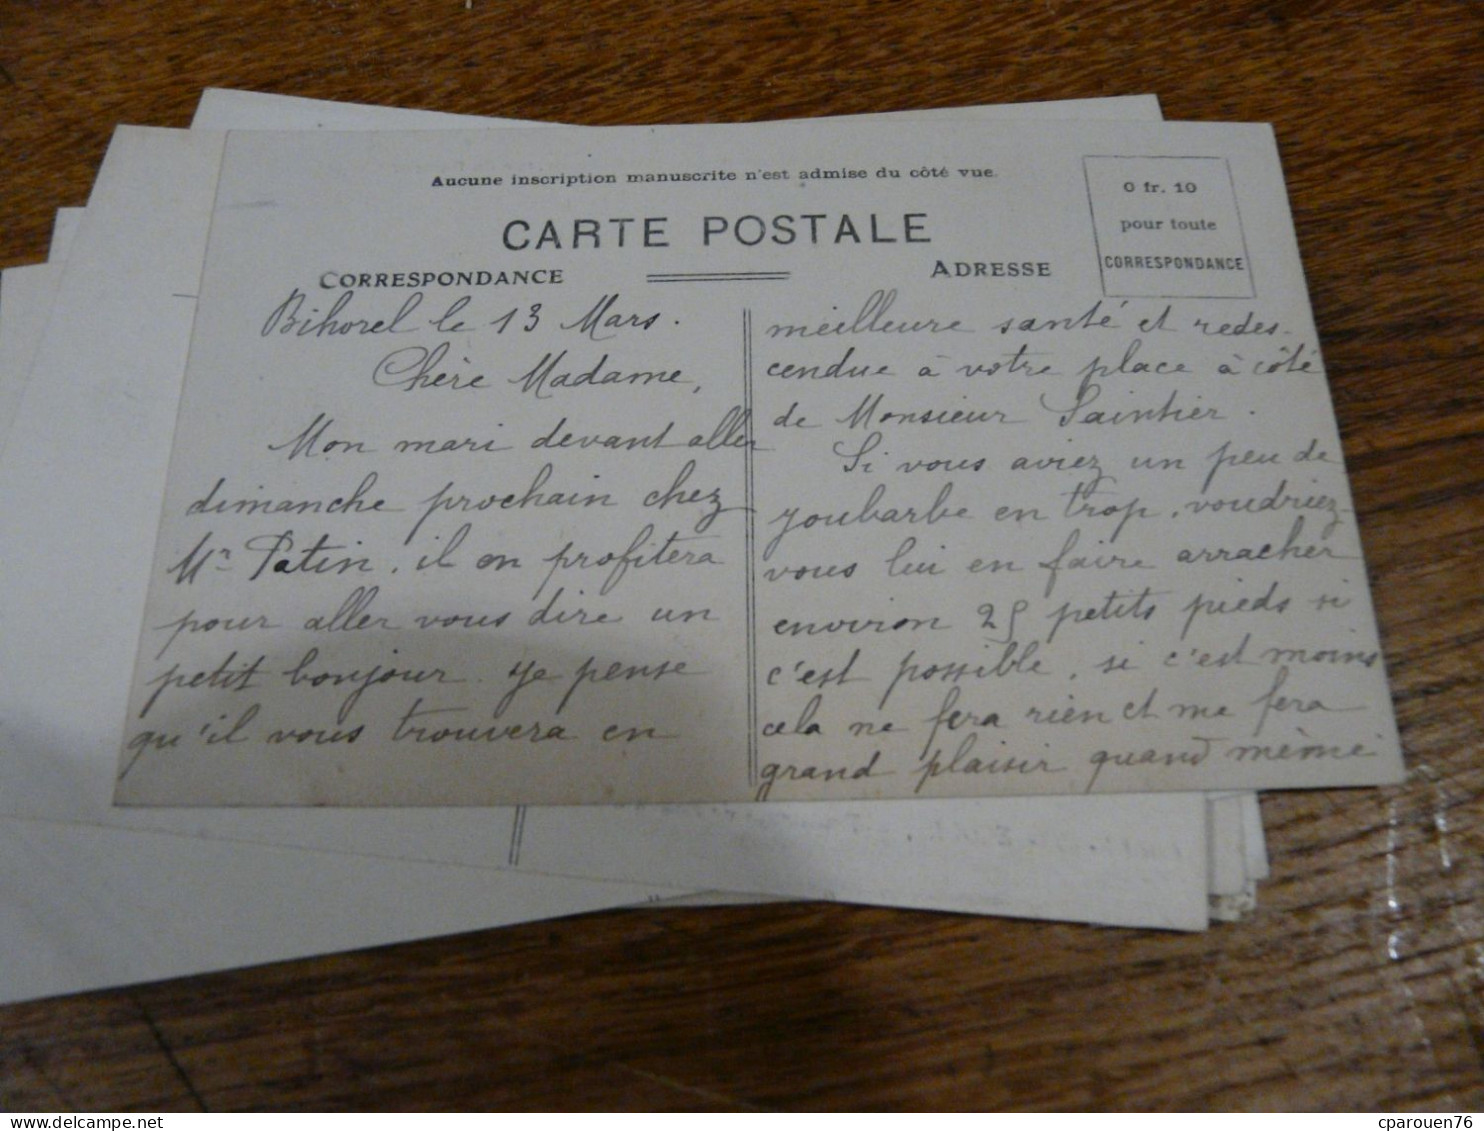 Aucune inscription manuscrite n'est admise du côté vue.
CARTE POSTALE
CORRESPONDANCE
ADRESSE
0 fr. 10
pour toute
CORRESPONDANCE
Bihorel le 13 Mars.
Chère Madame,
Mon mari devant aller
dimanche prochain chez
Mr Patin, il en profitera
pour aller vous dire un
petit bonjour. Je pense
qu'il vous trouvera en
meilleure santé et redes-
cendue à votre place à côté
de Monsieur Saintier.
Si vous aviez un peu de
joubarbe en trop, voudriez-
vous lui en faire arracher
environ 25 petits pieds si
c'est possible, si c'est moins
cela ne fera rien et me fera
grand plaisir quand même
cparouen76